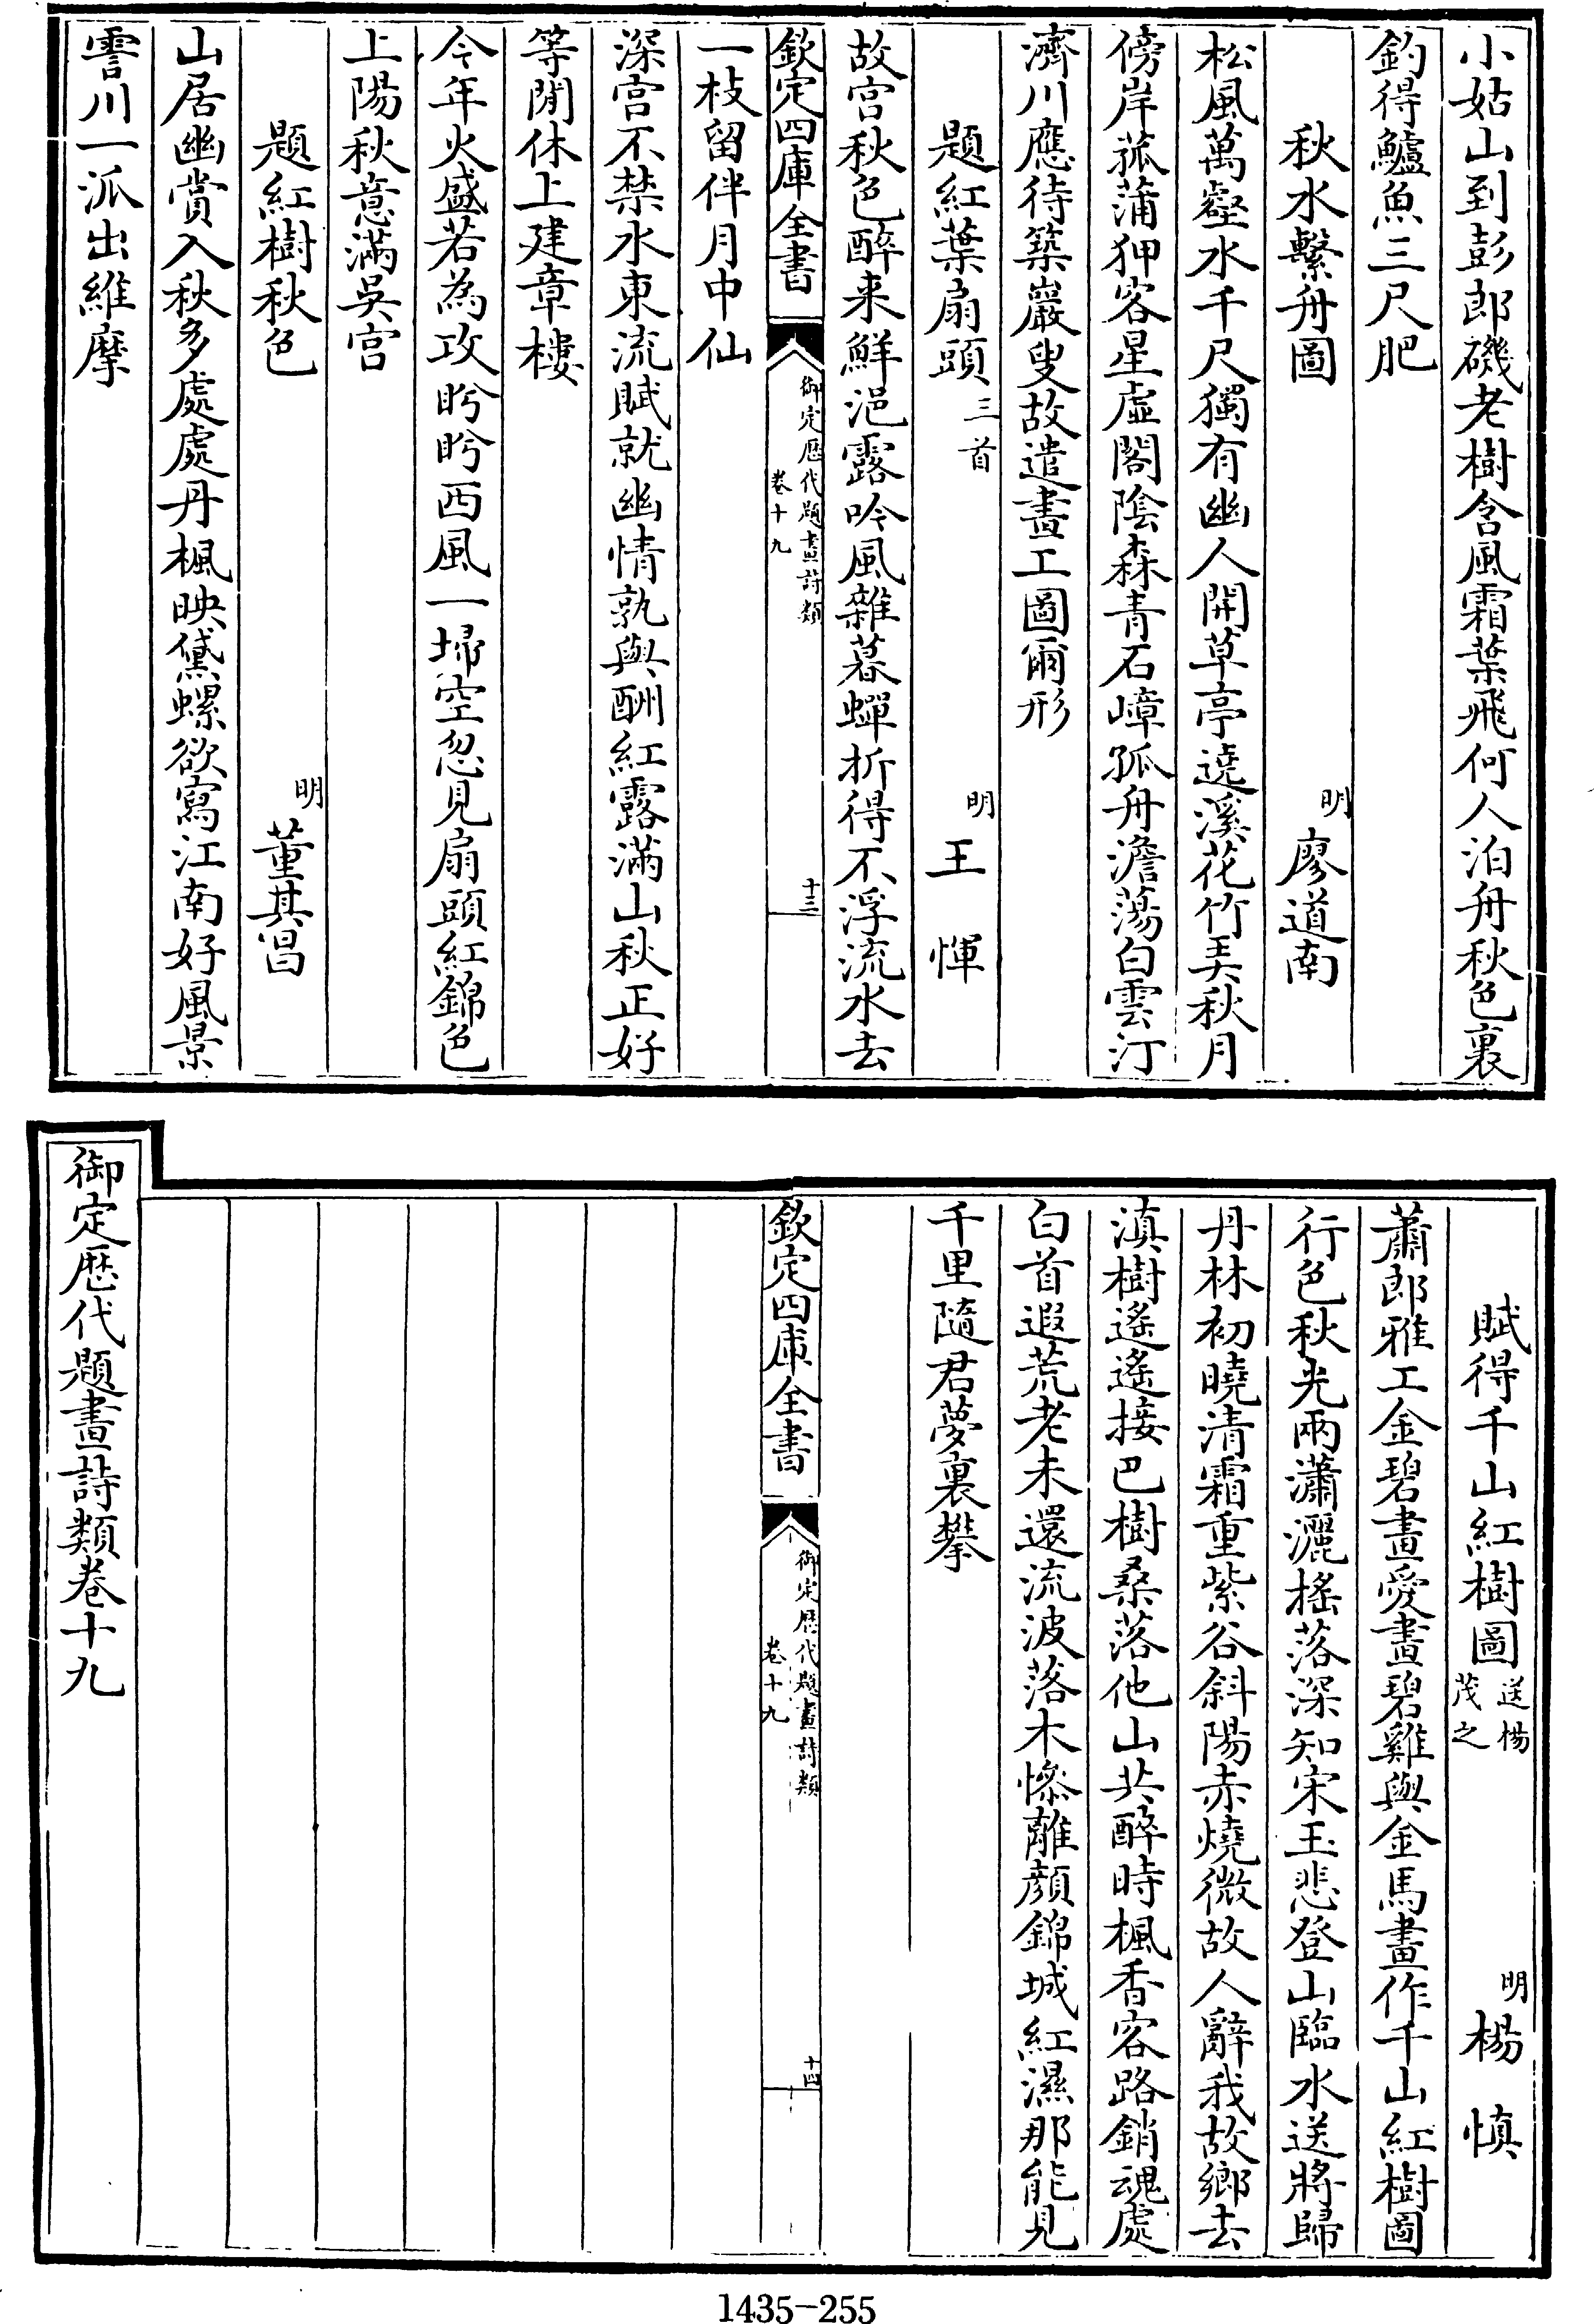 小姑山到彭郎磯老樹含風霜葉飛何人泊舟秋色裏
釣得鱸魚三尺肥
秋水繫舟圖 明 廖道南
松風萬壑水千尺獨有幽人開草亭遶溪花竹弄秋月
傍岸菰蒲狎客星虛閣陰森青石嶂孤舟澹蕩白雲汀
濟川應待築巖叟故遣畫工圖爾形
題紅葉扇頭 三首 明 王 惲
故宮秋色醉来鮮浥露吟風雜暮蟬折得不浮流水去
欽定四庫全書 御定歷代題畫詩類 卷十九 十三
一枝留伴月中仙
深宮不禁水東流賦就幽情孰與酬紅露滿山秋正好
等閒休上建章樓
今年火盛若為攻盻盻西風一埽空忽見扇頭紅錦色
上陽秋意滿吳宮
題紅樹秋色 明 董其昌
山居幽賞入秋多處處丹楓映黛螺欲寫江南好風景
霅川一派出維摩
賦得千山紅樹圖 送楊茂之 明 楊 慎
蕭郎雅工金碧畫愛畫碧雞與金馬畫作千山紅樹圖
行色秋光兩瀟灑搖落深知宋玉悲登山臨水送將歸
丹林初曉清霜重紫谷斜陽赤燒微故人辭我故鄉去
滇樹遙遙接巴樹桑落他山共醉時楓香客路銷魂處
白首遐荒老未還流波落木慘離顏錦城紅濕那能見
千里隨君夢裏攀
欽定四庫全書 御定歷代題畫詩類 卷十九 十四
御定歷代題畫詩類卷十九
1435-255